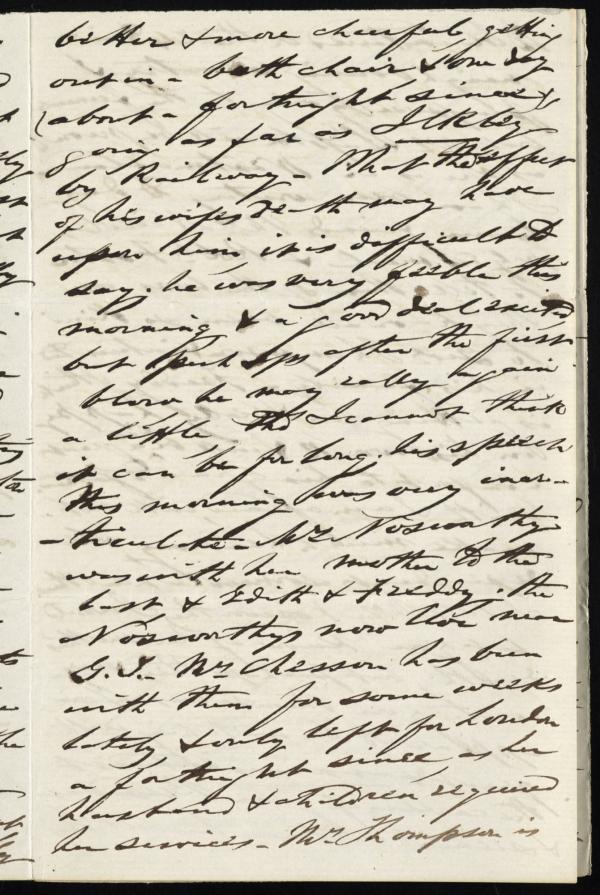 better & more cheerful, getting
out in a bath chair & one day
(about a fortnight since),
going as far as Ilkley
by Railway - What the effect
of his wifes death may have
upon him it is difficult to
say. he was very feeble this
morning & a good deal excited
but perhaps after the first
blow he may rally again
a little, tho I cannot think
it can be for long. his speech
this morning was very inar-
-ticulate - Mrs Nosworthy
was with her mother to the
last & Edith & Freddy. the
Nosworthys now live near
G. T. Mrs Chesson has been
with them for some weeks
lately & only left for London
a fortnight since as her
husband & children required
her services - Mr Thompson is